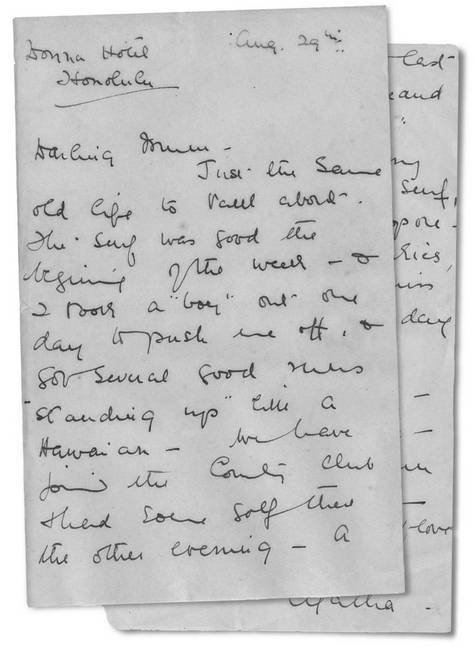 Donna Hotel
Honolulu
Aug. 29th
Darling Mum –
Just the same
old life to tell about.
The surf was good the
begining of the week – &
I took a "boy" out one
day to push me off, &
got several good runs
"standing up" like a
Hawaian – We have
join'd the Country Club
& had some golf there
the other evening – A
last
and
surf,
day
love
Agatha.